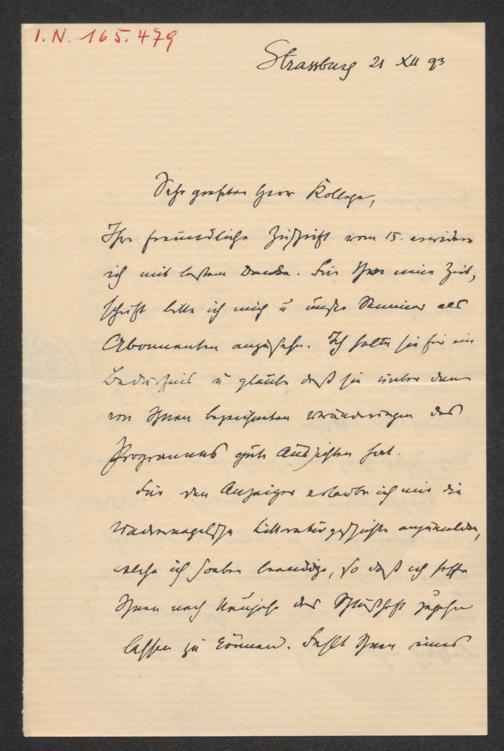 I.N. 165.479
Strassburg 21 XII 93
Sehr geehrter Herr Kollege,
Ihre freundliche Zuschrift vom 15. erwidere
ich mit bestem Danke. Für Ihre neue Zeit,
schrift bitte ich mich u unser Seminar als
Abonnenten anzusehn. Ich halte sie für ein
Bedürfnis u glaube daß sie unter den
von Ihnen bezeichneten veränderungen des
Programms gute Aussichten hat.
Für den Anzeiger erlaube ich mir die
Wackernagelsche Litteraturgeschichte anzumelden,
welche ich soeben beendige, so daß ich hoffe
Ihnen nach Neujahr das Schlußheft zugehn
lassen zu können. Sollt Ihnen eines